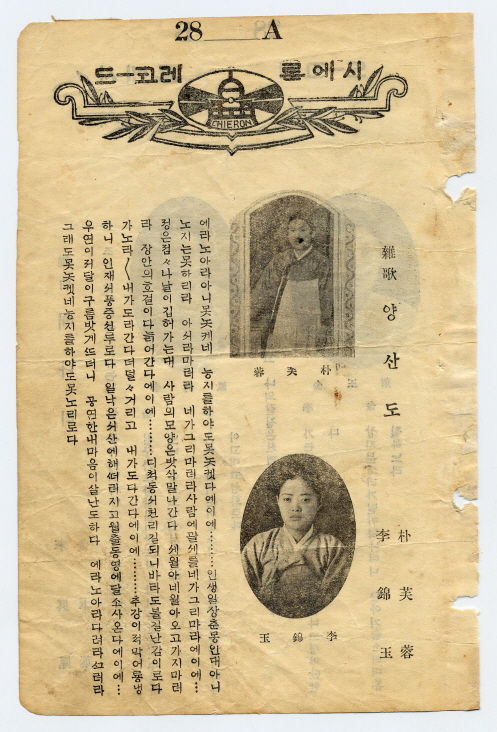 28 A
시에론 레코ー드
CHIERON
雜歌 양산도
朴芙蓉
李錦玉
朴芙蓉
李錦玉
에라노아라아니못놋케네 능지를하야도못놋켓다에이에………인생일장춘몽안대아니
노지는못하리라 아서라마러라 네가그리마러라사람에괄세를네가그리마라에이에…
정은점々나날이깁허가는대 사람의모양은밧삭말나간다 세월아네월아오고가지마러
라 장안의호걸이다늙어간다에이에………디척동서천리길되니바라도볼길난감이로다
가노라〱내가도라간다더덜々거리고 내가도다간다에이에………추강이적막어룡냉
하니 인재서풍중선루로다 일낙은서산에해떠러지고월출동영에달소사온다에이에…
우연이저달이구름밧게뜨더니 공연한내마음이살난도하다 에라노아라다려라쓰러라
그래도못놋켓네능지를하야도못노리로다